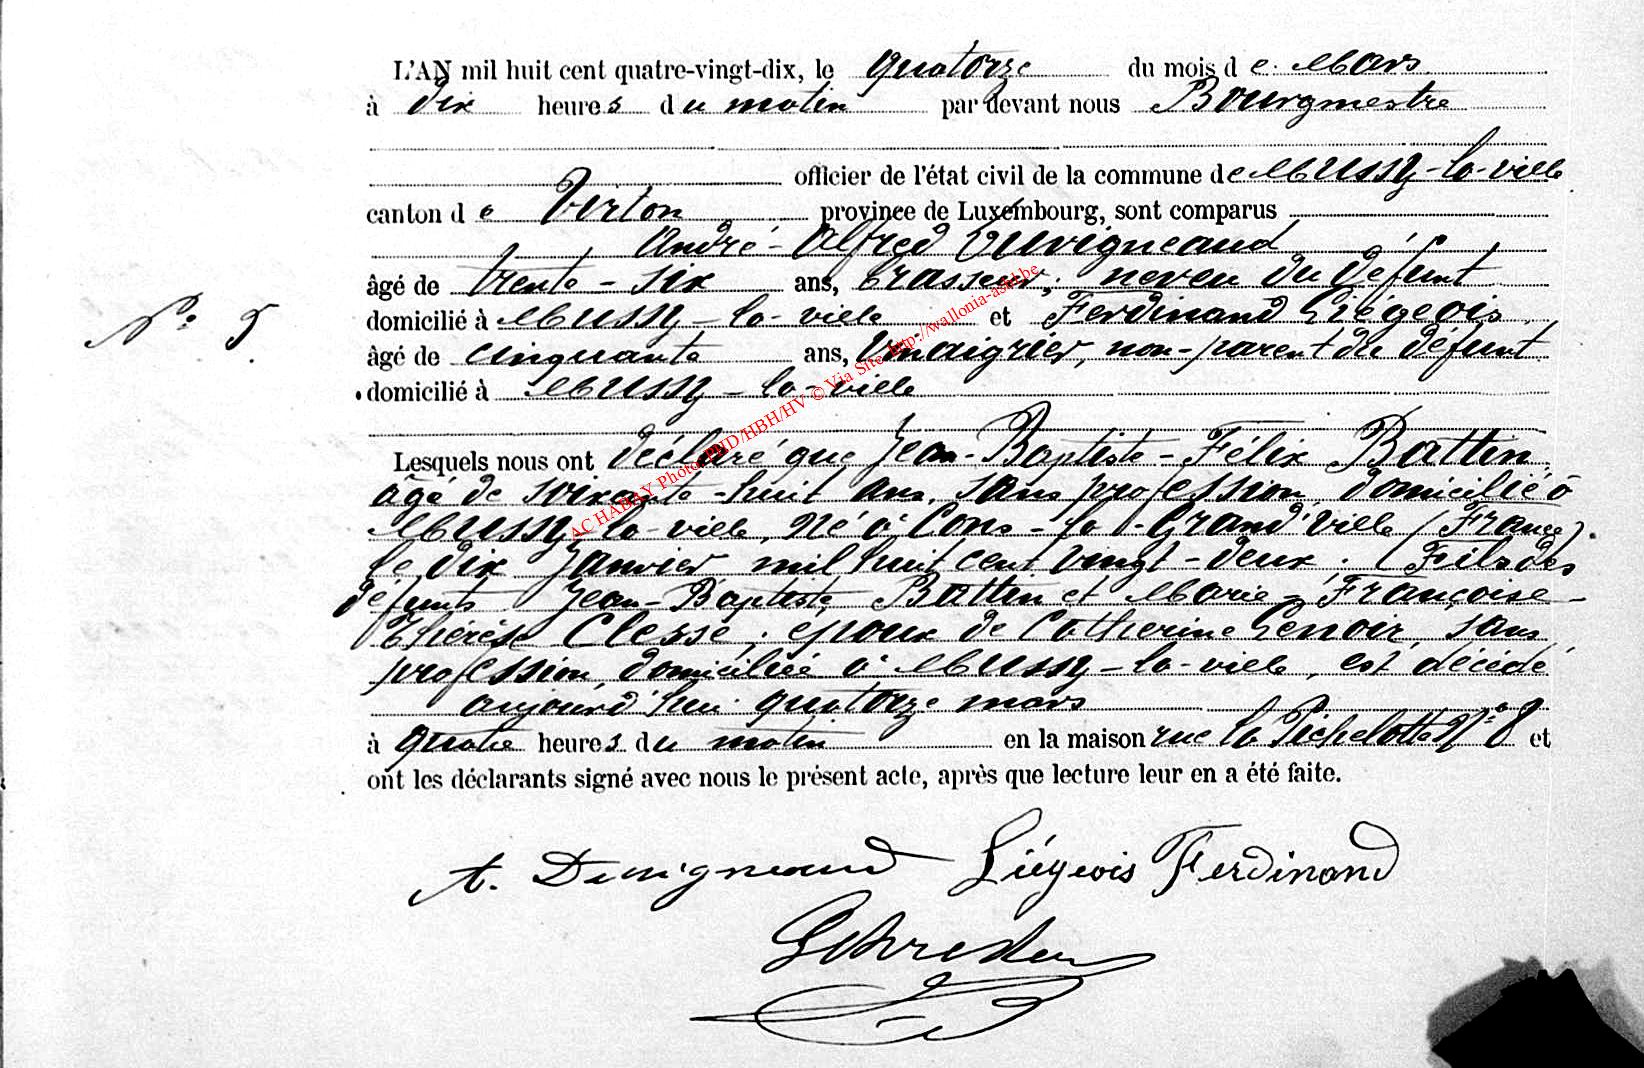 L'AN mil huit cent quatre-vingt-dix, le quatorze du mois de Mars
à dix heures du matin par devant nous Bourgmestre
officier de l'état civil de la commune de Mussy-la-ville
canton de Virton province de Luxembourg, sont comparus
André-Alfred Duvigneaud
âgé de trente-six ans, brasseur, neveu du défunt
N° 5
domicilié à Mussy-la-ville et Ferdinand Liégeois
âgé de cinquante ans, vinaigrier, non-parent du défunt
domicilié à Mussy-la-ville
Lesquels nous ont déclaré que Jean-Baptiste-Félix Battin
âgé de soixante-huit ans, sans profession, domicilié à
Mussy-la-ville, né à Cons-la-Grand'ville (France)
le dix Janvier mil huit cent vingt-deux. (Fils des
défunts Jean-Baptiste Battin et Marie-Françoise-
Thérèse Clesse, époux de Catherine Lenoir, sans
profession, domiciliée à Mussy-la-ville, est décédé
aujourd'hui quatorze mars
à quatre heures du matin en la maison rue la Pichelotte N° 8 et
ont les déclarants signé avec nous le présent acte, après que lecture leur en a été faite.
A. Duvigneaud Liégeois Ferdinand
AC HABAY Photos PHD/HBH/HV © Via Site http://wallonia-asbl.be